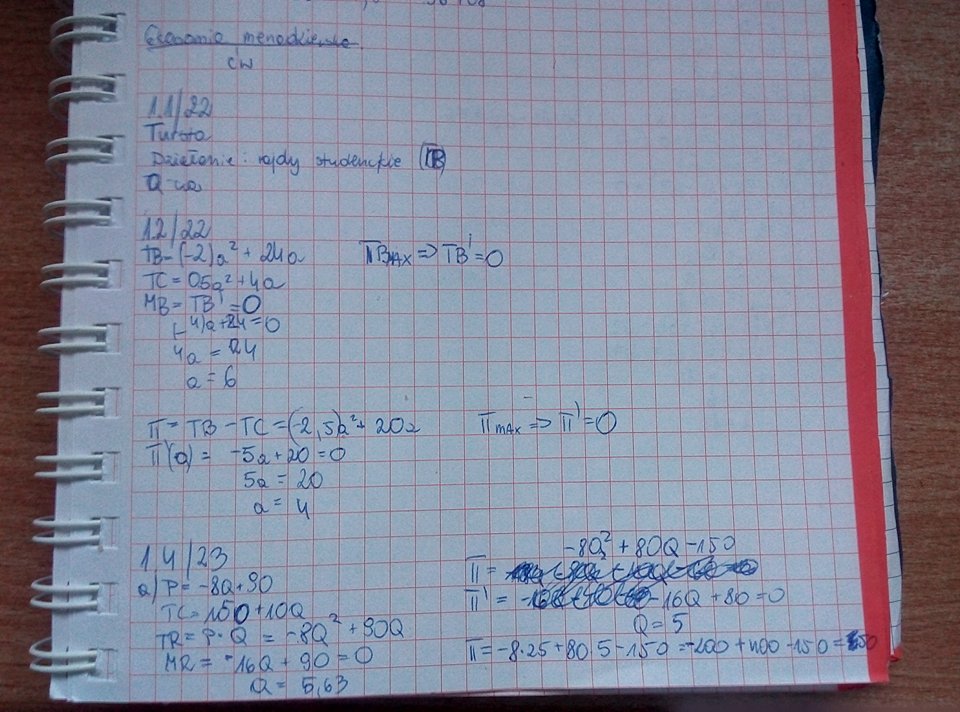 Ekonomia menedżerska
cw
1.1/22
Turysta
Działanie: rajdy studenckie (TB)
1.2/22
TB = (-2)a² + 24a
TBMAX => TB' = 0
TC = 0,5a² + 4a
MB = TB' = 0
(-4)a + 24 = 0
4a = 24
a = 6
Π = TB - TC = (-2,5)a² + 20a
Πmax => Π' = 0
Π'(a) = -5a + 20 = 0
5a = 20
a = 4
1.4/23
a) P = -8Q + 90
TC = 150 + 10Q
TR = P · Q = -8Q² + 90Q
MR = -16Q + 90 = 0
Q = 5,63
-8Q² + 80Q - 150
Π =
Π' = -16Q + 80 = 0
Q = 5
Π = -8·25 + 80·5 - 150 = -200 + 400 - 150 = 50